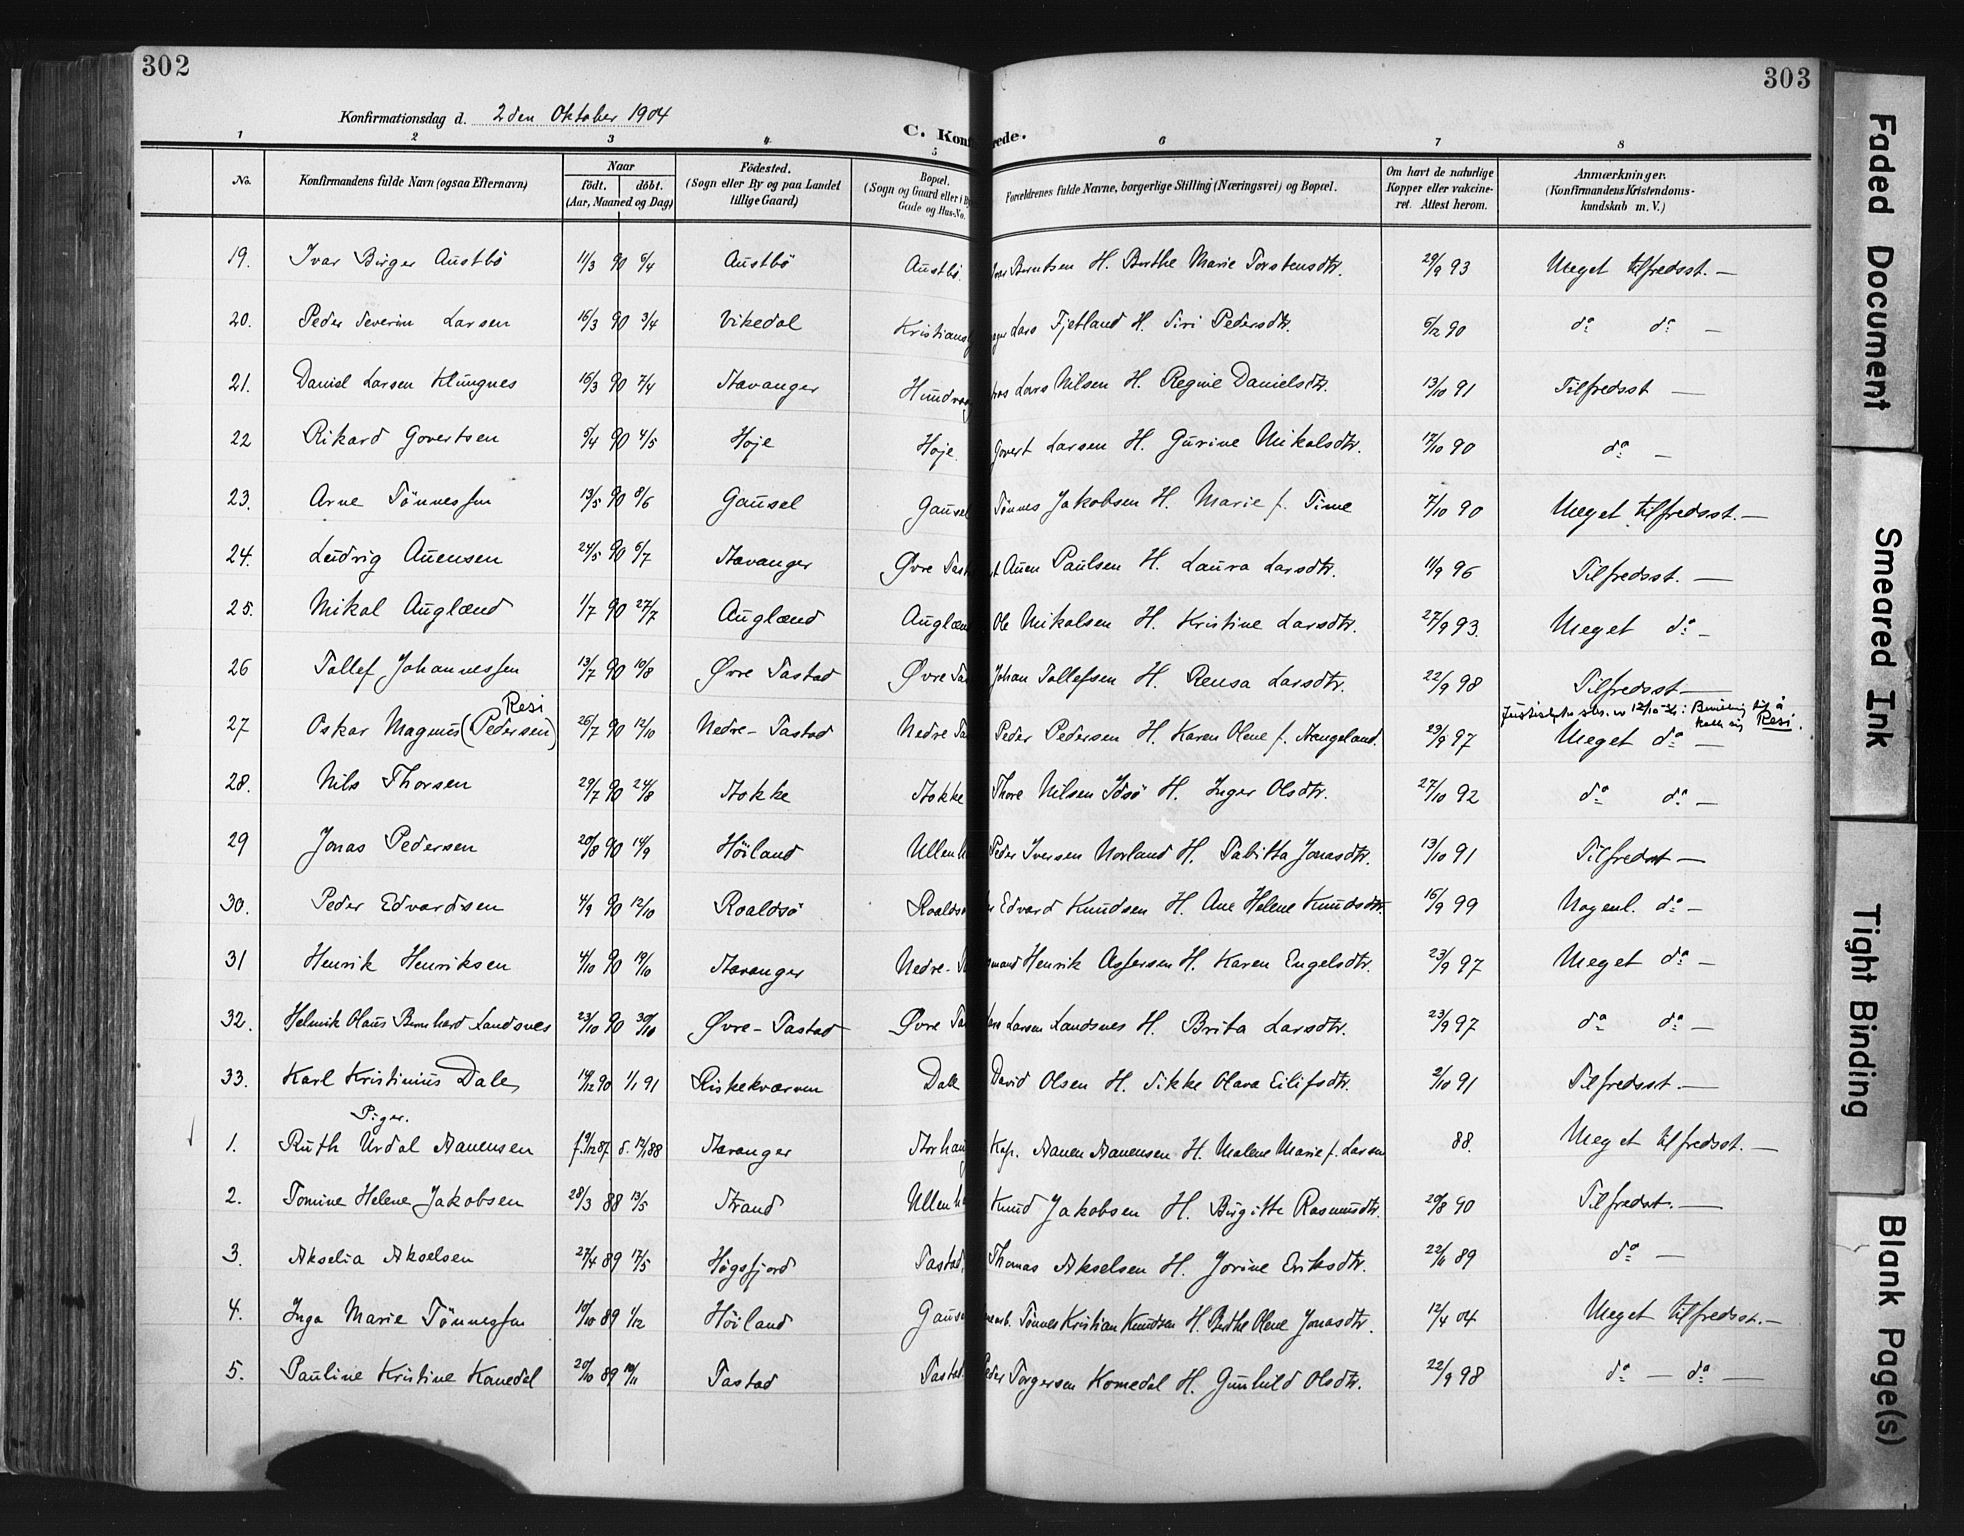 302
303
Konfirmationsdag d. 2den Oktober 1904
C. Konf rede.
1 2 3 4 5 6 7 8
No. Konfirmandens fulde Navn (ogsaa Efternavn) Naar födt. döbt. (Aar, Maaned og Dag) Födested. (Sogn eller By og paa Landet tillige Gaard) Bopæl. (Sogn og Gaard eller i By Gade og Hus-No. Forældrenes fulde Navne, borgerlige Stilling (Næringsvei) og Bopæl. Om havt de naturlige Kopper eller vakcineret. Attest herom. Anmærkninger. (Konfirmandens Kristendomskundskab m. V.)
19. Ivar Birger Austbö 11/3 90 6/4 Austbö Austbö Berntsen H. Berthe Marie Torstensdtr. 29/9 93 Meget tilfredsst. —
20. Peder Severin Larsen 16/3 90 3/4 Vikedal Kristians Lars Fjetland H. Siri Pedersdtr. 6/12 90 do do —
21. Daniel Larsen Klungnes 16/3 90 7/4 Stavanger Hundvaag Lars Nilsen H. Regine Danielsdtr. 13/10 91 Tilfredsst —
22 Rikard Govertsen 5/4 90 4/5 Høje Høje. Govert Larsen H. Gurine Mikalsdtr. 17/10 90 do —
23. Arne Tönnessen 13/5 90 8/6 Gausel Gausel Tönnes Jakobsen H. Marie f. Time 7/10 90 Meget tilfredsst. —
24. Ludvig Auensen 24/5 90 6/7 Stavanger Øvre Tast Auen Paulsen H. Laura Larsdtr. 11/9 96 Tilfredsst. —
25. Mikal Auglænd 1/7 90 27/7 Auglænd Auglæn Ole Mikalsen H. Kristine Larsdtr. 27/9 93. Meget do —
26 Tollef Johannessen 13/7 90 10/8 Øvre Tastad Øvre Tas Johan Tollefsen H. Rensa Larsdtr. 22/9 98 Tilfredsst —
Resi 12/10 kalle sig Resi.
27 Oskar Magnus (Pedersen) 26/7 90 12/10 Nedre-Tastad Nedre Tas Peder Pedersen H. Karen Olene f. Stangeland. 23/9 97 Meget do —
28. Nils Thorsen 29/7 90 24/8 Stokke Stokke Thore Nilsen Idsö H. Inger Olsdtr. 27/10 92 do do —
29 Jonas Pedersen 20/8 90 14/9 Höiland Ullenha Peder Iversen Norland H. Tabitta Jonasdtr. 13/10 91 Tilfredsst —
30. Peder Edvardsen 4/9 90 12/10 Roaldsö Roaldsö Edvard Knudsen H. Ane Helene Knudsdtr. 16/9 99 Nogenl. do —
31 Henrik Henriksen 4/10 90 19/10 Stavanger Nedre-T Henrik Assersen H. Karen Engelsdtr. 23/9 97 Meget do —
32. Helmik Olaus Bernhard Landsnes 23/10 90 30/10 Øvre-Tastad Øvre Tas Lars Larsen Landsnes H. Brita Larsdtr. 23/9 97 do do —
33. Karl Kristinius Dale 14/12 90 1/1 91 Riskekværven Dale David Olsen H. Sikke Olava Eilifsdtr. 2/10 91 Tilfredsst. —
Piger.
1. Ruth Urdal Aanensen f. 9/12 87 d. 12/1 88 Stavanger Storhaug Kap. Aanen Aanensen H. Malene Marie f. Larsen 88. Meget tilfredsst. —
2. Tomine Helene Jakobsen 28/3 88 13/5 Strand Ullenha Knud Jakobsen H. Birgitte Rasmusdtr. 20/8 90 Tilfredsst. —
3. Akselia Akselsen 27/4 89 17/5 Høgsfjord Tastad. Thomas Akselsen H. Jorine Eriksdtr. 22/11 89 do —
4. Inga Marie Tönnessen 10/10 89 1/12 Höiland Gausel Tönnes Kristian Knudsen H. Berthe Olene Jonasdtr. 12/4 04 Meget tilfredsst. —
5. Pauline Kristine Komedal 20/10 89 10/11 Tastad Tastad. Peder Torgersen Komedal H. Gunhild Olsdtr. 22/9 98 do — do —
Faded Document
Smeared Ink
Tight Binding
Blank Page(s)